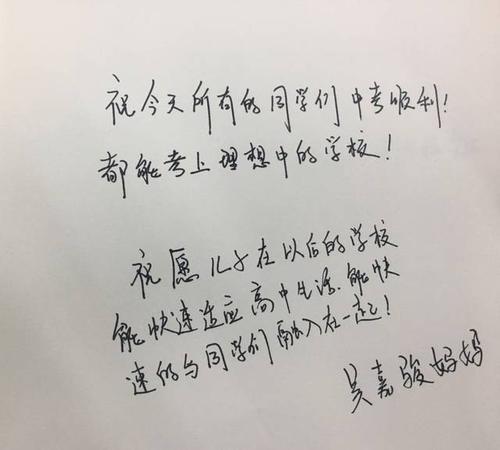 祝今天所有的同学们中考顺利！
都能考上理想中的学校！
祝愿儿子在以后的学校
能快速适应高中生活.能快
速的与同学们融入在一起！
吴嘉骏妈妈